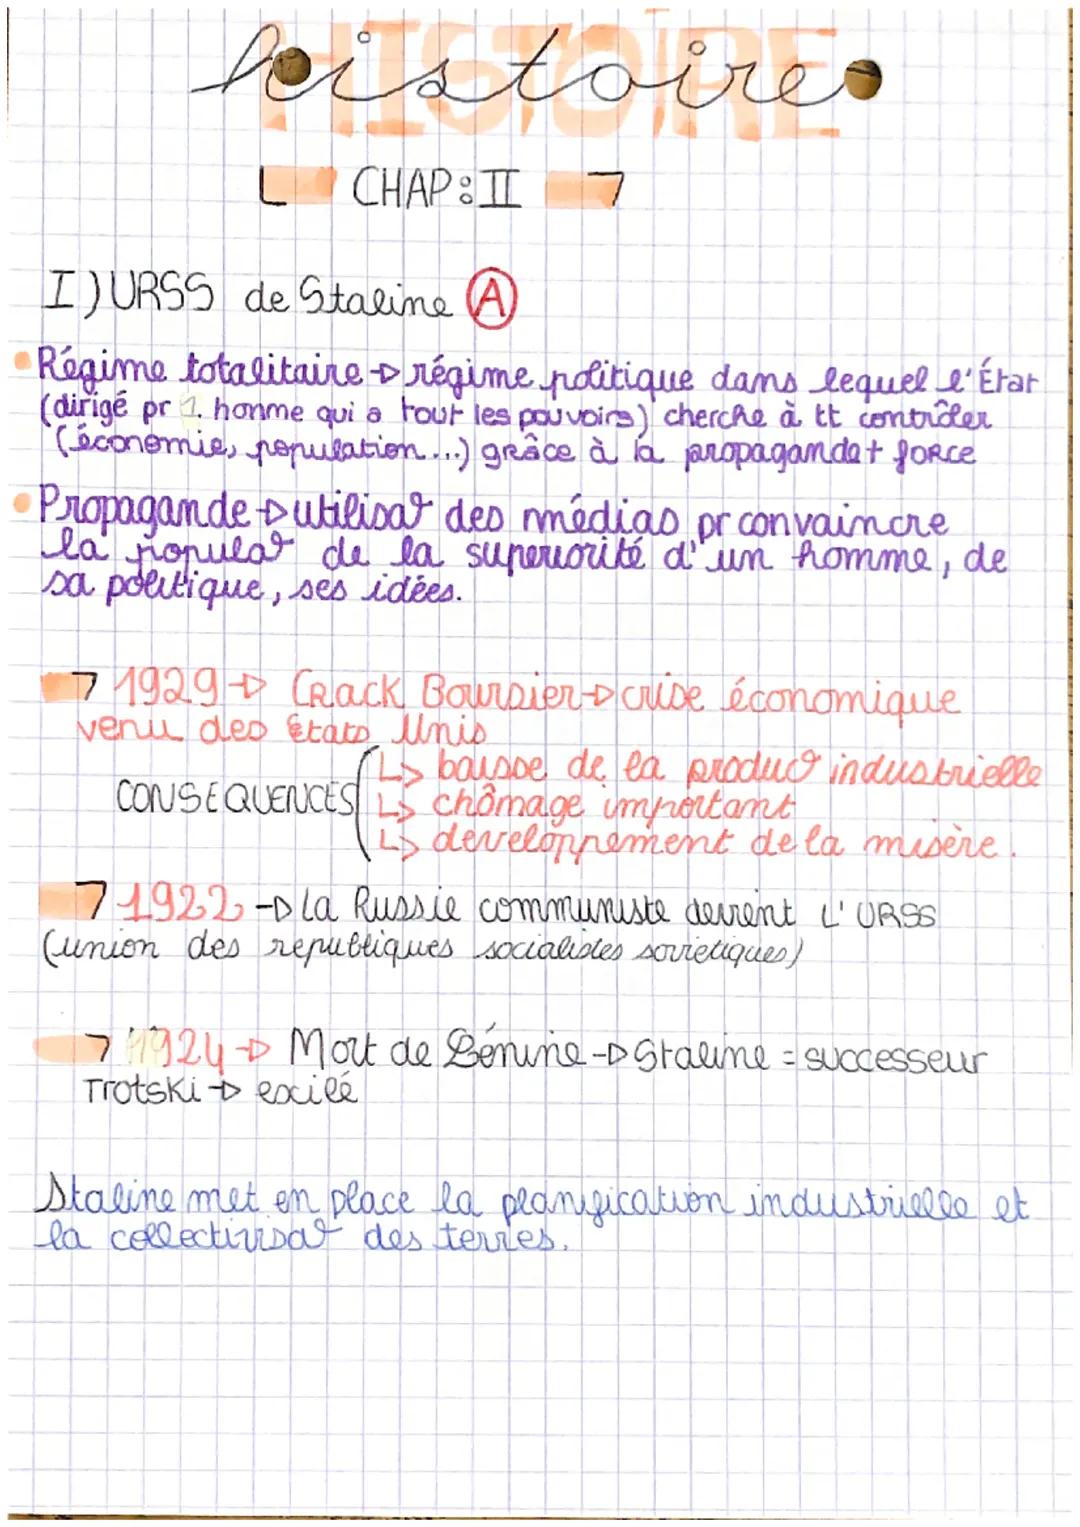 HISTOIRE
histoire
CHAP: II
I) URSS de Staline A
Régime totalitaire → régime politique dans lequel l'État
(dirigé pr 1 homme qui a tout les pouvoirs) cherche à tt contrôler
(économie, population...) grâce à la propagande + force
Propagande → utilisat° des médias pr convaincre
la populat° de la superiorité d'un homme, de
sa politique, ses idées.
1929 → Crack Boursier → crise économique
venu des États Unis
CONSEQUENCES
↳ baisse de la produc° industrielle
↳ chômage important
↳ developpement de la misère.
1922 → La Russie communiste devient L'URSS
(union des republiques socialistes sovietiques)
1924 → Mort de Lénine → Staline = successeur
Trotski → exilé
Staline met en place la planification industrielle et
la collectivisat° des terres.